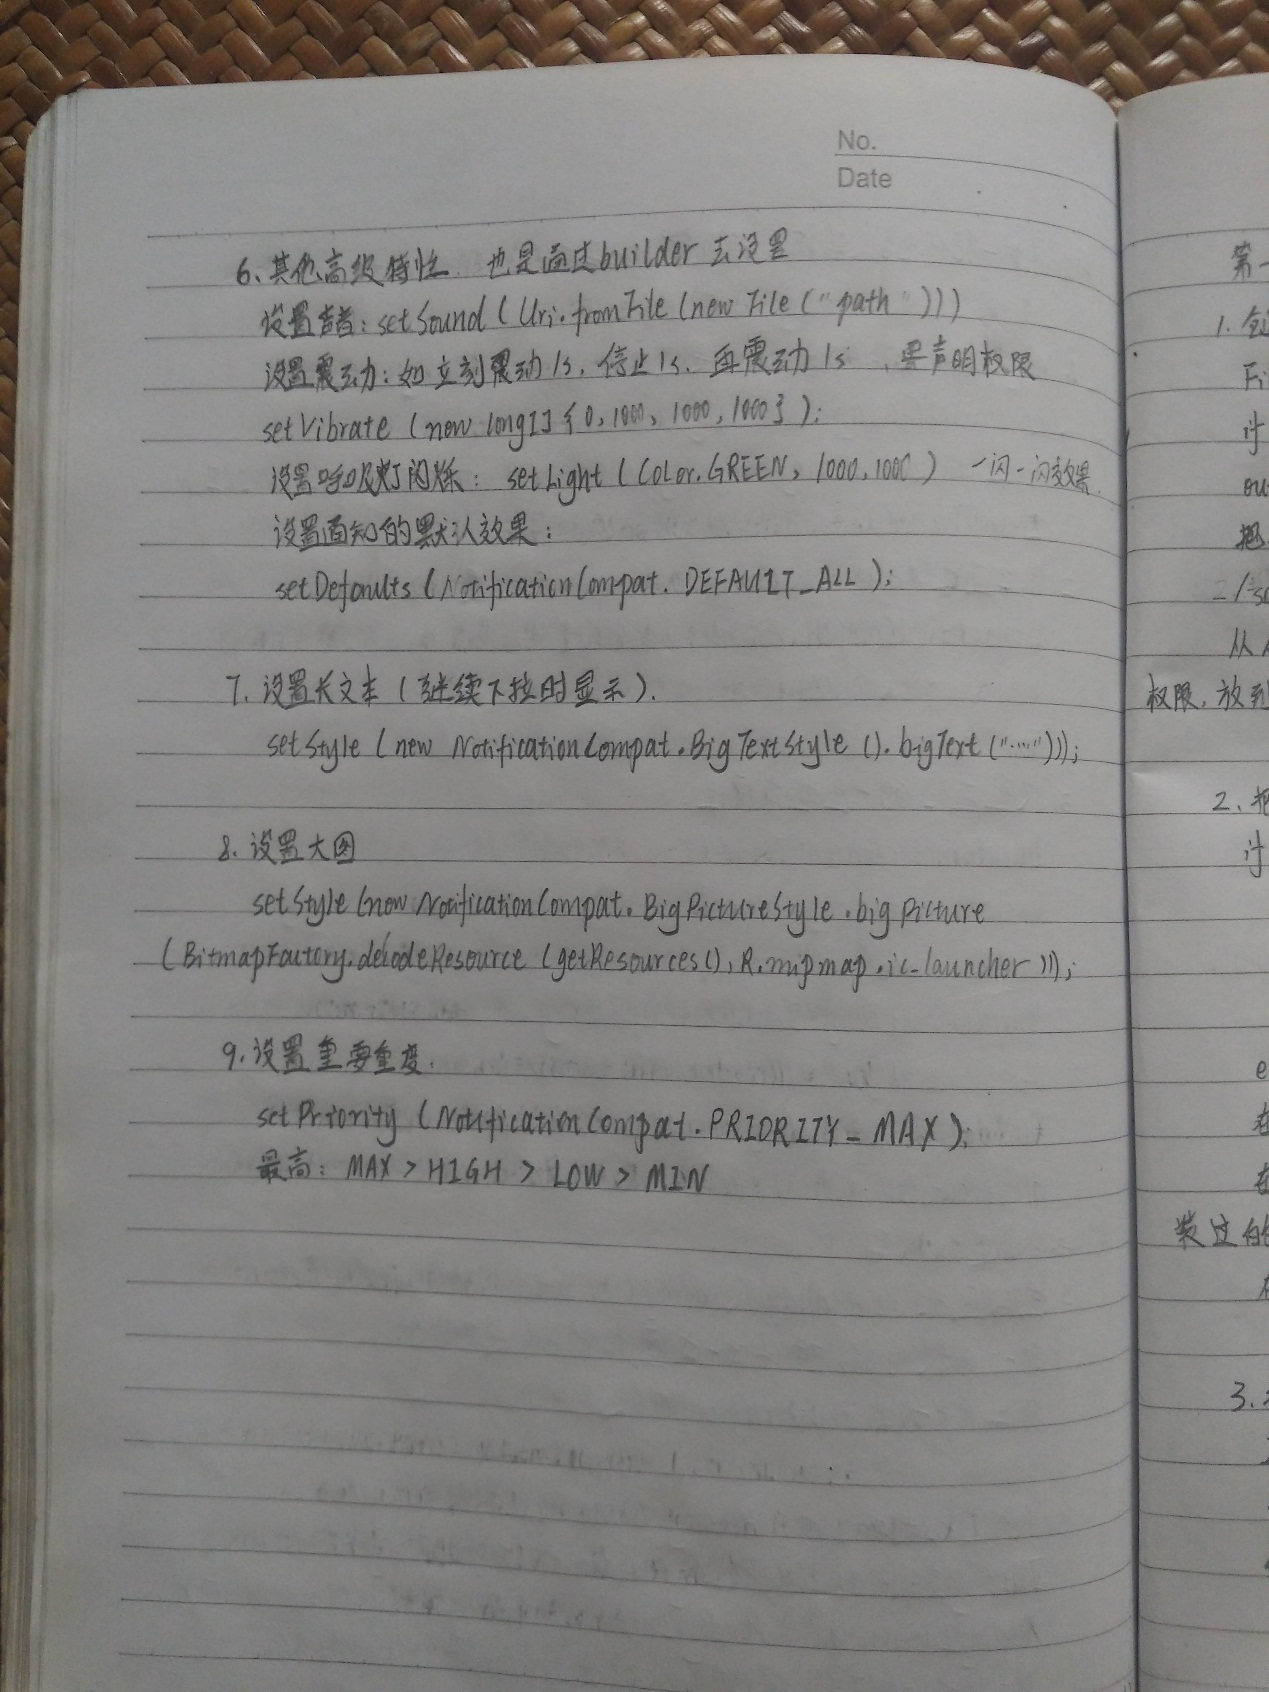 No.
Date
6、其他高级特性. 也是通过builder去设置
设置声音：setSound（Uri.fromFile（new File（"path"）））
设置震动：如立刻震动1s，停止1s，再震动1s、要声明权限
setVibrate（new long[]{0,1000,1000,1000}）；
设置呼吸灯闪烁：setLight（Color.GREEN，1000,1000）一闪一闪效果.
设置通知的默认效果：
setDefaults（NotificationCompat.DEFAULT_ALL）；
7、设置长文本（继续下拉时显示）.
setStyle（new NotificationCompat.BigTextStyle（）.bigText（"……"）））；
8、设置大图
setStyle（new NotificationCompat.BigPictureStyle.bigPicture
（BitmapFactory.decodeResource（getResources（），R.mipmap.ic_launcher）））；
9、设置重要重度.
setPriority（NotificationCompat.PRIORITY_MAX）；
最高：MAX > HIGH > LOW > MIN
第一
1.
Fi
ou
从
权限，放到
2、把
e
在
在
装过的
3、